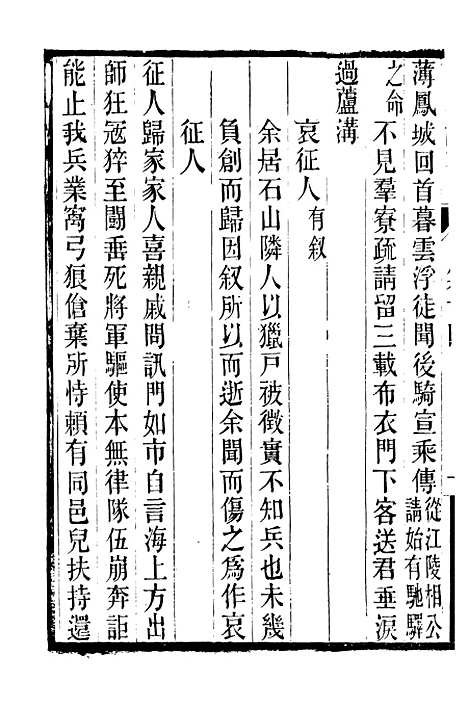 薄鳳城回首暮雲浮徒聞後騎宣乘傳從江陵相公請始有馳驛
之命不見羣寮疏請留三載布衣門下客送君垂淚
過蘆溝
哀征人有叙
余居石山隣人以獵戸被徵實不知兵也未幾
負創而歸因叙所以而逝余聞而傷之爲作哀
征人
征人歸家家人喜親戚問訊門如市自言海上方出
師狂冦猝至鬪垂死將軍驅使本無律隊伍崩奔詎
能止我兵業窩弓狼傖棄所恃賴有同邑兒扶持還